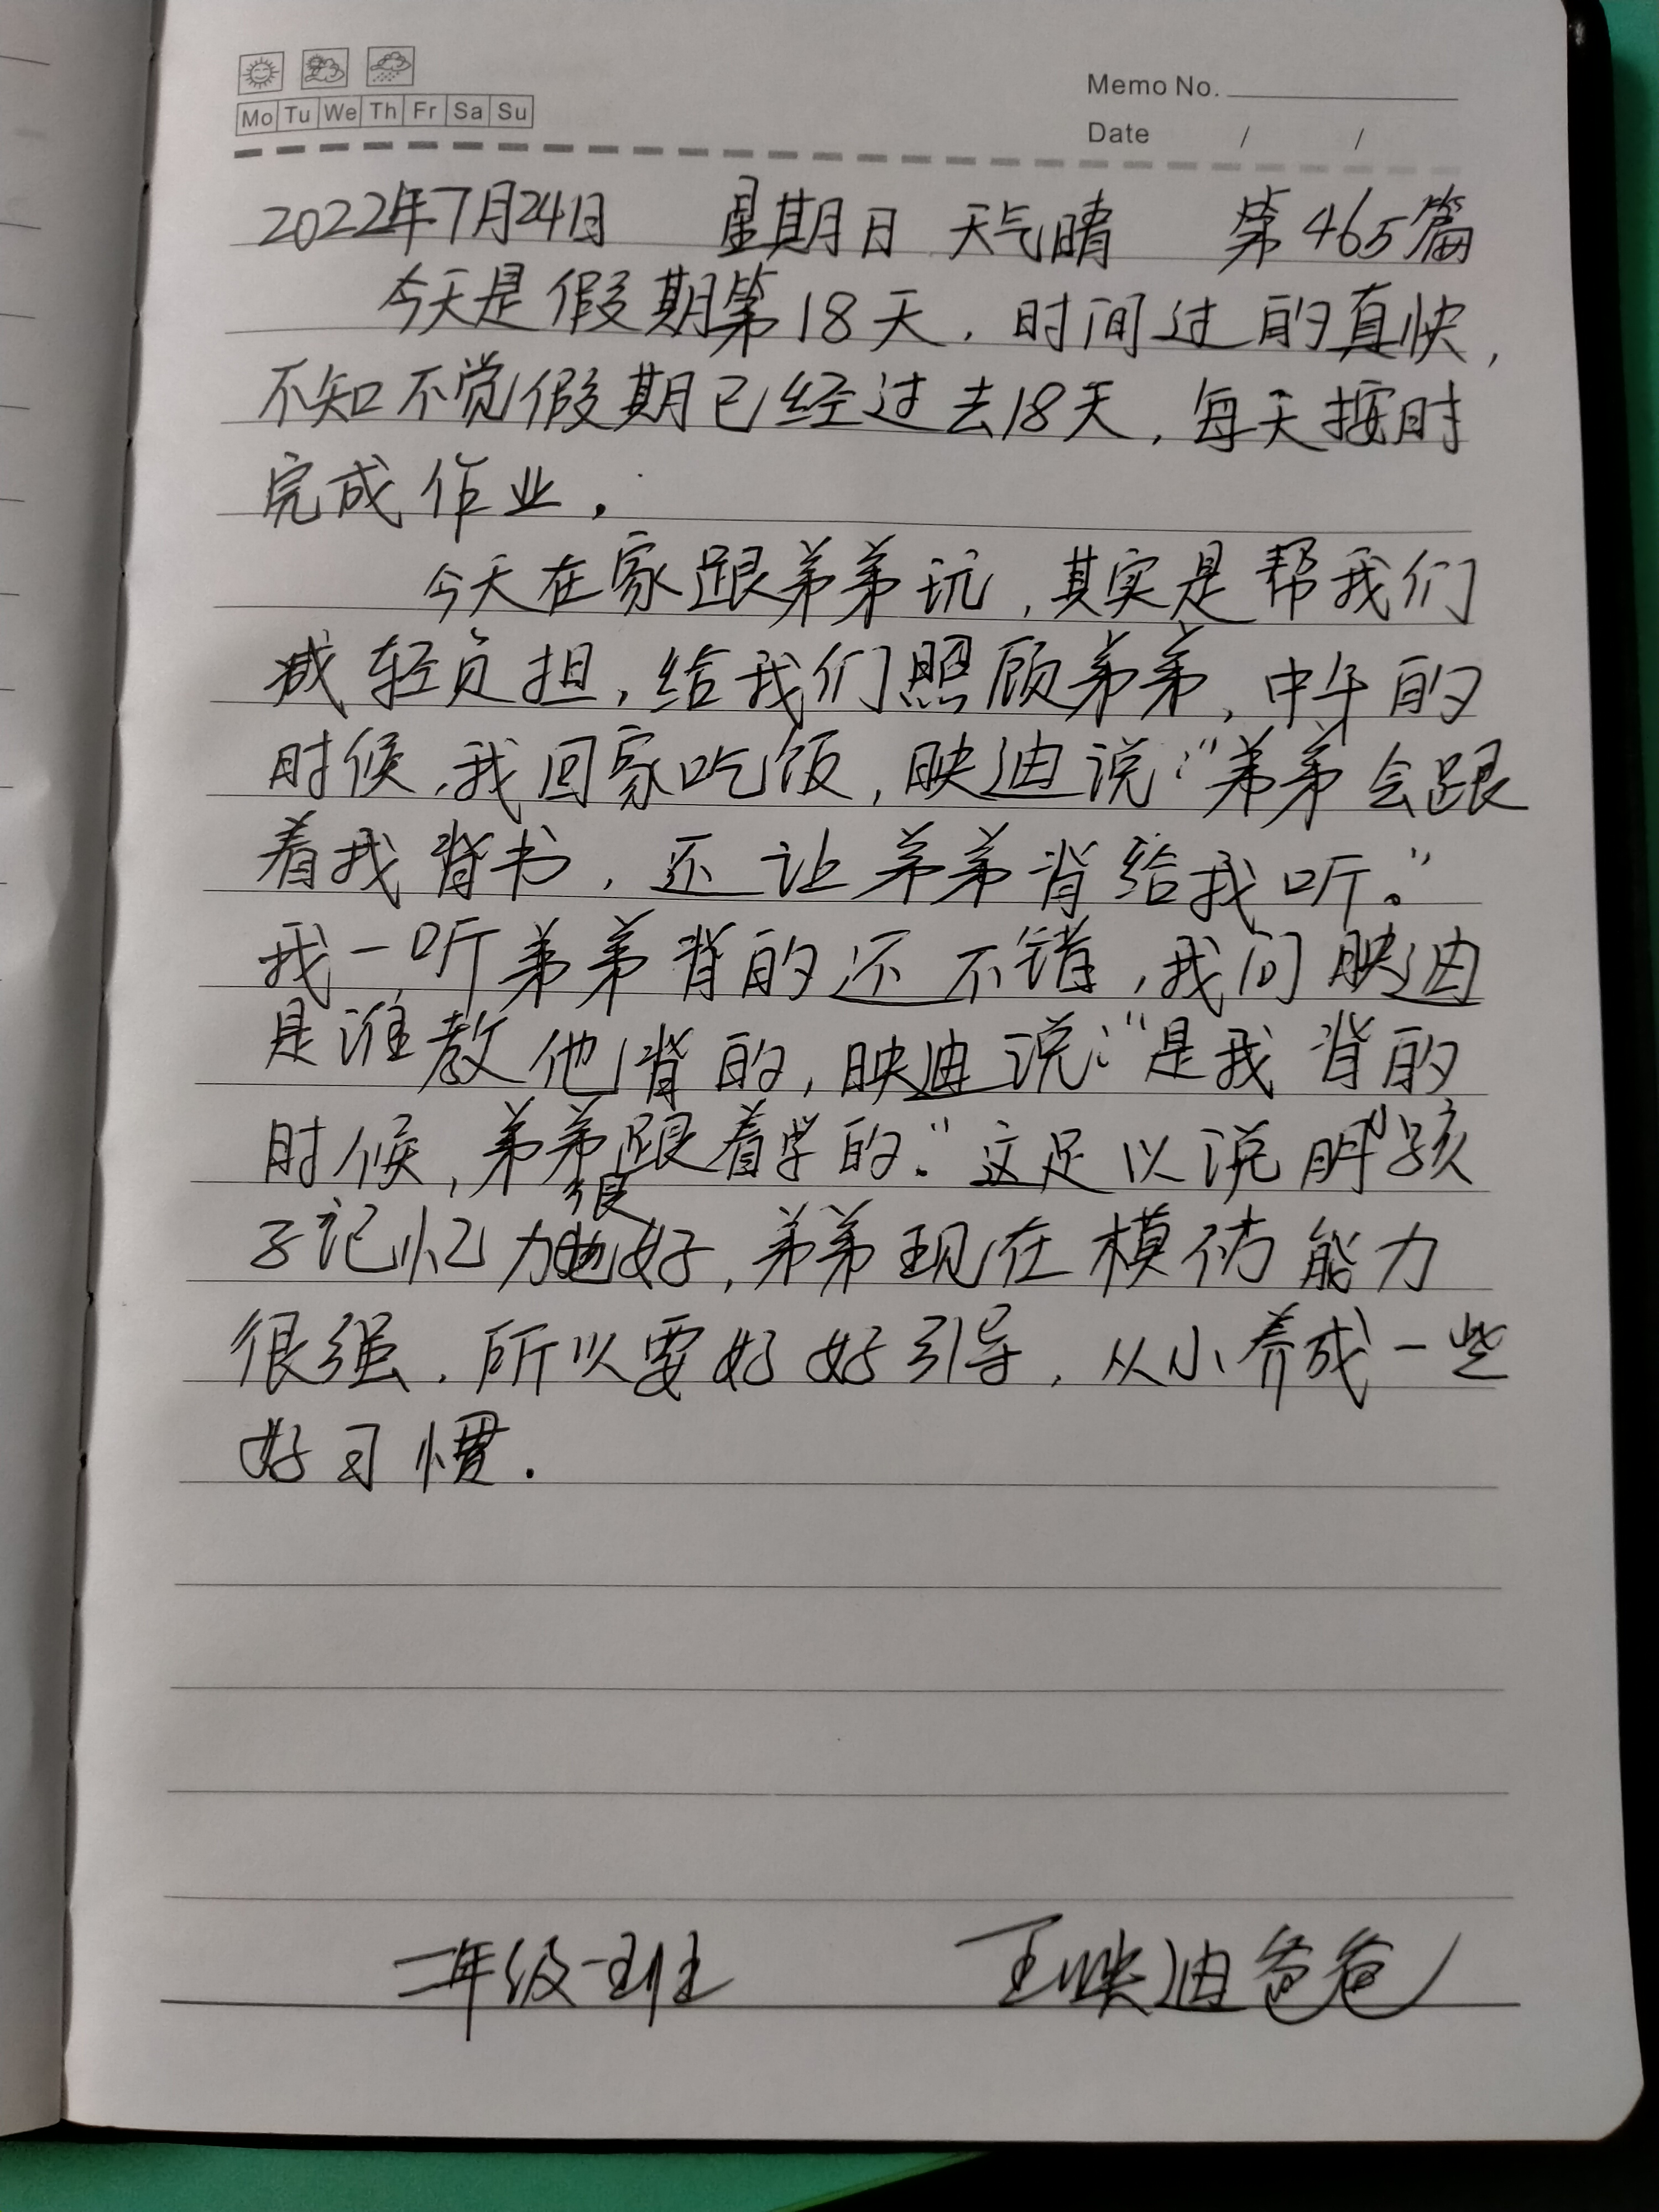 Mo Tu We Th Fr Sa Su
Memo No.
Date / /
2022年7月24日 星期日 天气晴 第465篇
今天是假期第18天，时间过的真快，
不知不觉假期已经过去18天，每天按时
完成作业。
今天在家跟弟弟玩，其实是帮我们
减轻负担，给我们照顾弟弟，中午的
时候，我回家吃饭，映迪说：“弟弟会跟
着我背书，还让弟弟背给我听。”
我一听弟弟背的还不错，我问映迪
是谁教他背的，映迪说：“是我背的
时候，弟弟跟着学的。”这足以说明小孩
子记忆力很好，弟弟现在模仿能力
很强，所以要好好引导，从小养成一些
好习惯.
二年级一班 王映迪爸爸